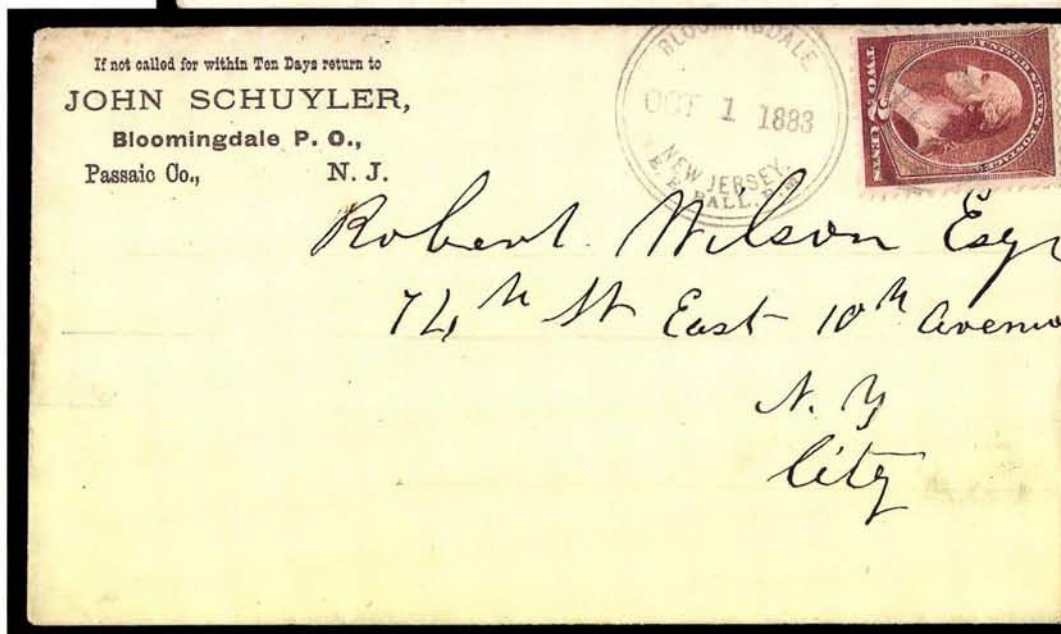 If not called for within Ten Days return to
JOHN SCHUYLER,
Bloomingdale P. O.,
Passaic Co., N. J.
BLOOMINGDALE
OCT 1 1883
NEW JERSEY.
BALL. P.M.
UNITED STATES POSTAGE
TWO 2 CENTS
Robert Wilson Esqr
74th St East 10th Avenu
N. Y
City